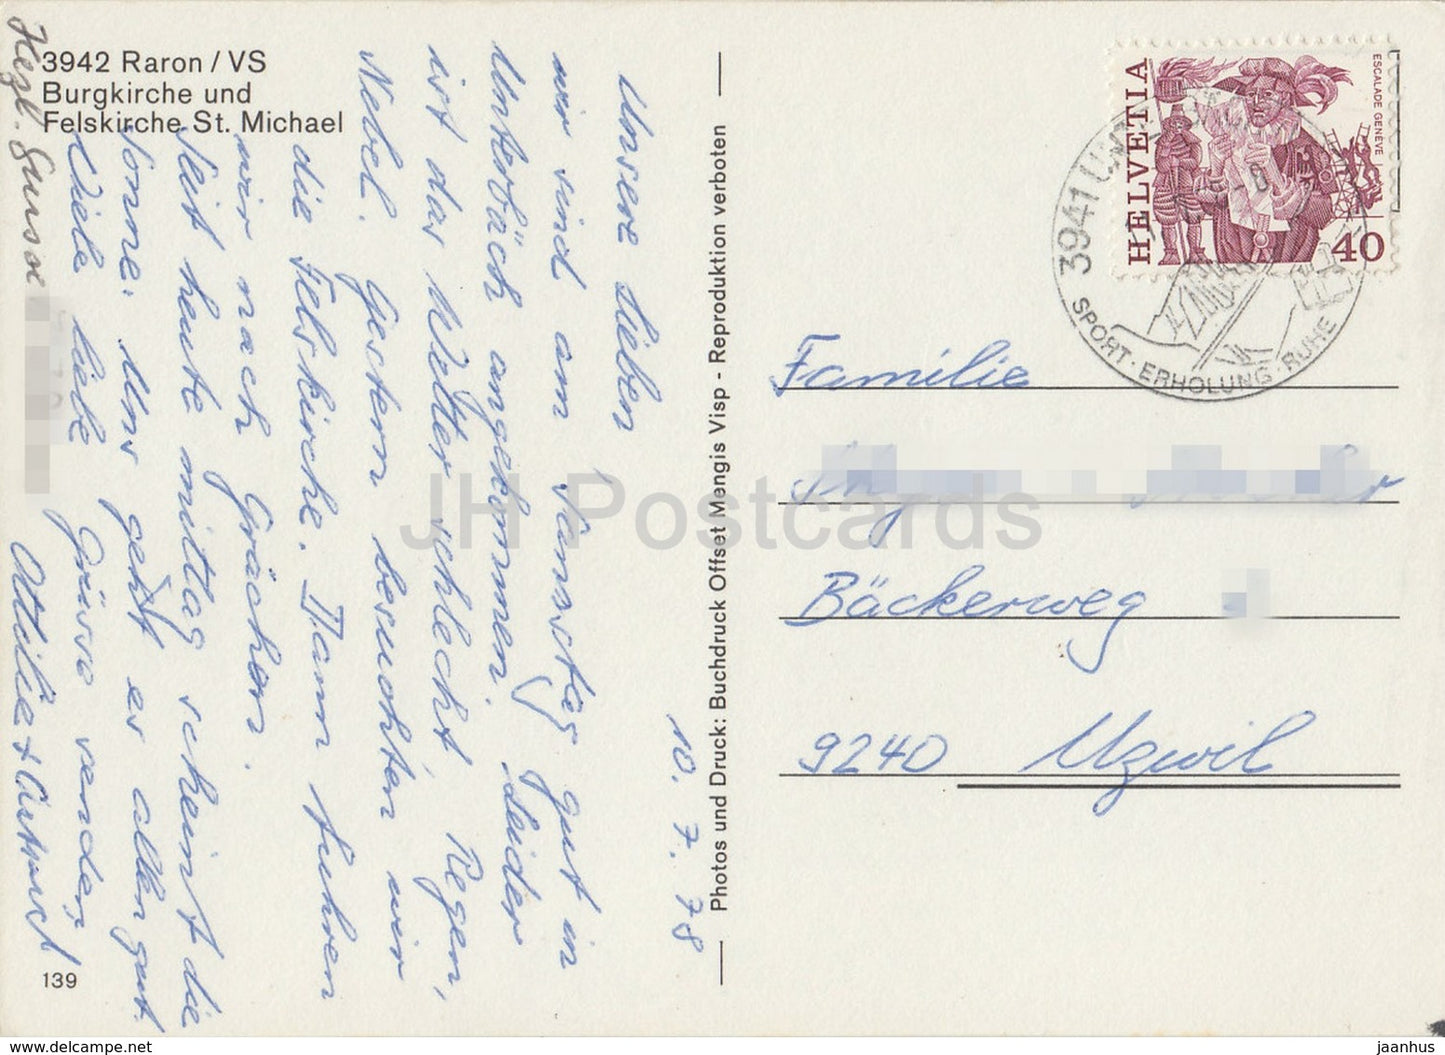 3942 Raron / VS
Burgkirche und
Felskirche St. Michael
10. 7. 78
Unsere Lieben
wir sind am Samstag gut in
Unterbäch angekommen. Leider
ist das Wetter schlecht Regen,
Nebel. Gestern besuchten wir
die Felskirche. Dann fuhren
wir nach Grächen.
Seit heute mittag scheint die
Sonne. Uns geht es allen gut.
Viele liebe Grüsse senden
Ottilie +
Herzl. Grüsse
139
Photos und Druck: Buchdruck Offset Mengis Visp - Reproduktion verboten
HELVETIA
ESCALADE GENÈVE
40
3941
SPORT · ERHOLUNG · RUHE
Familie
Bäckerweg
9240 Uzwil
JH Postcards
www.delcampe.net
jaanhus